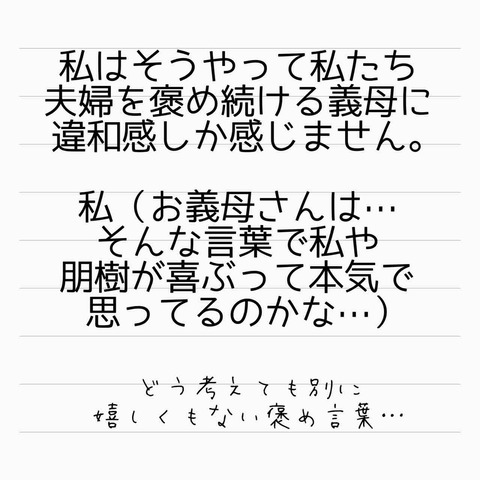 私はそうやって私たち
夫婦を褒め続ける義母に
違和感しか感じません。
私（お義母さんは…
そんな言葉で私や
朋樹が喜ぶって本気で
思ってるのかな…）
どう考えても別に
嬉しくもない褒め言葉…